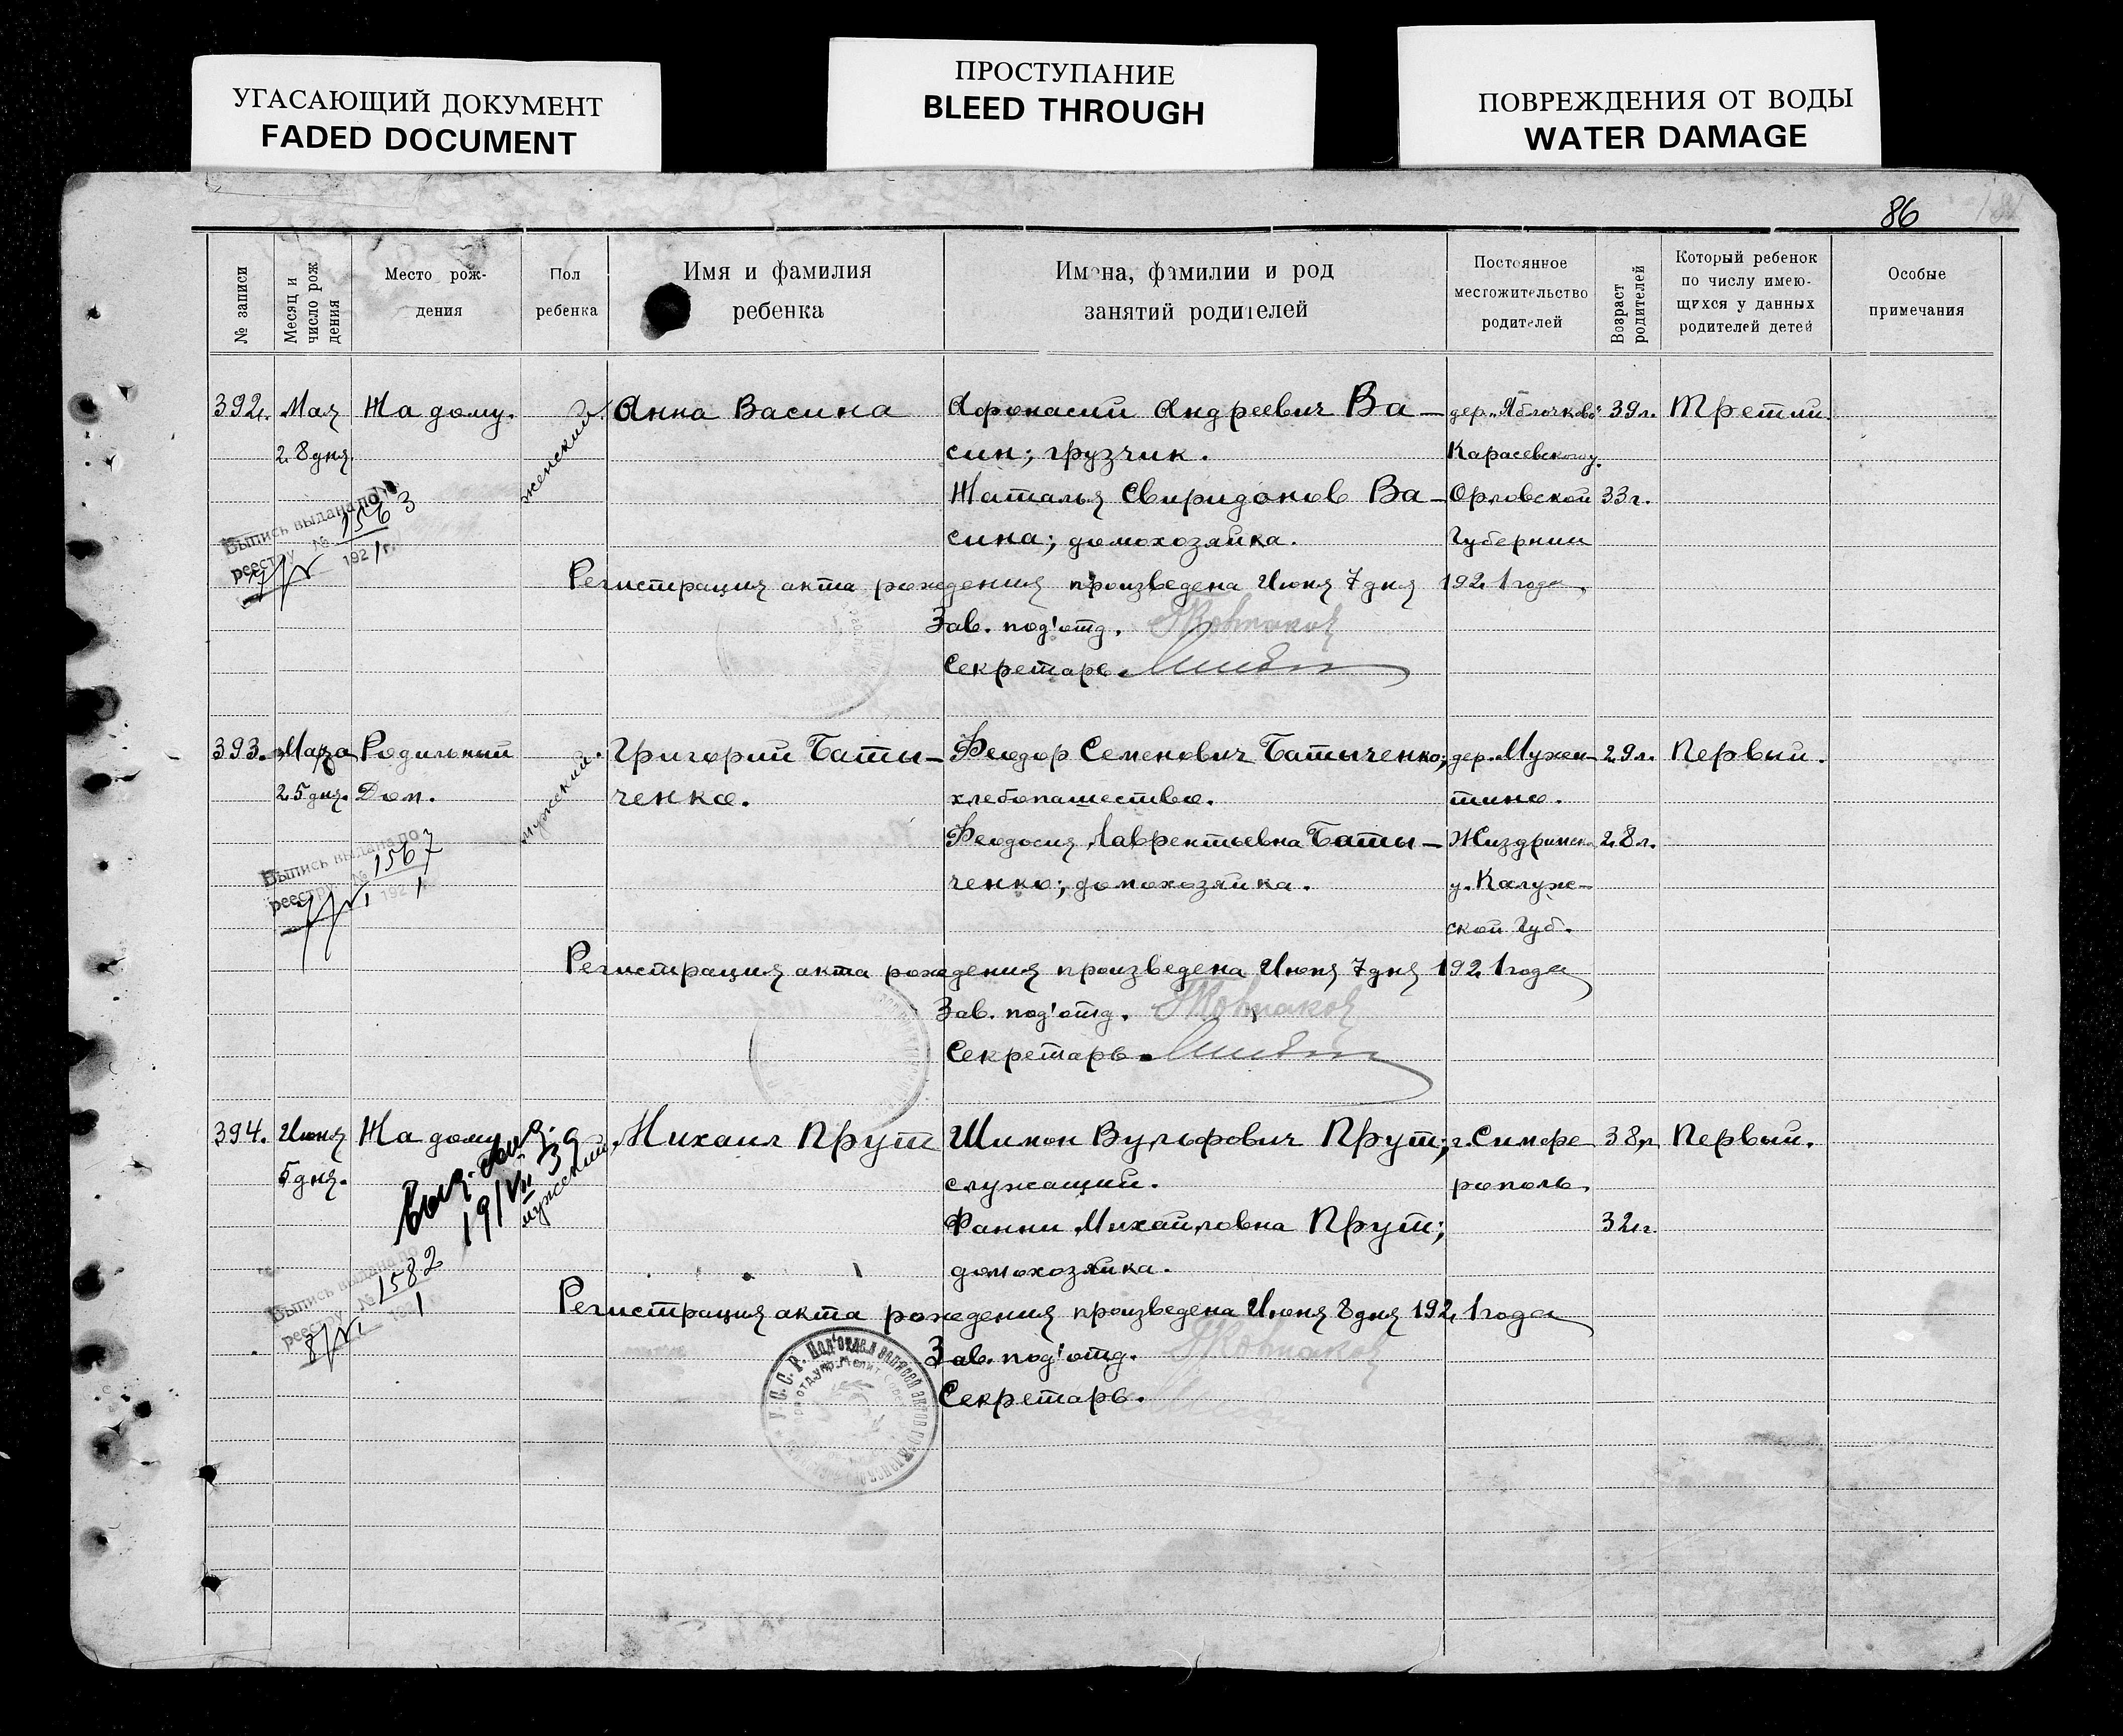 УГАСАЮЩИЙ ДОКУМЕНТ
FADED DOCUMENT
ПРОСТУПАНИЕ
BLEED THROUGH
ПОВРЕЖДЕНИЯ ОТ ВОДЫ
WATER DAMAGE
86
№ записи
Месяц и число рождения
Место рождения
Пол ребенка
Имя и фамилия ребенка
Имена, фамилии и род занятий родителей
Постоянное местожительство родителей
Возраст родителей
Который ребенок по числу имеющихся у данных родителей детей
Особые примечания
392. Мая На дому. женский Анна Васина Афонасий Андреевич Ва- дер. „Яблочково" 39 л. Третий.
28 дня. син; грузчик. Карасевского у.
Наталья Свиридонов Ва- Орловской 33 г.
сина; домохозяйка. Губернии
Выпись выдана по
реестру № 1563
192 1 г.
Регистрация акта рождения произведена Июня 7 дня 1921 года.
Зав. под'отд.
Секретарь
393. Родильный мужский. Григорий Баты- Феодор Семенович Батыченко; дер. 29 л. Первый.
25 дня. Дом. ченко. хлебопашество. тино.
Феодосия Лаврентьевна Баты- Жиздринск 28 л.
ченко; домохозяйка. у. Калуж-
ской Губ.
Выпись выдана по
реестру № 1567
192 1
Регистрация акта рождения произведена Июня 7 дня 1921 года
Зав. под'отд.
Секретарь
394. Июня На дому мужский. Михаил Прут Шимон Вульфович Прут; г. Симфе 38 л. Первый.
5 дня. служащий. рополь.
Фанни Михайловна Прут; 32 г.
домохозяйка.
19/VII 39
Выпись выдана по
реестру № 1582
192 1
Регистрация акта рождения произведена Июня 8 дня 1921 года
Зав. под'отд.
Секретарь.